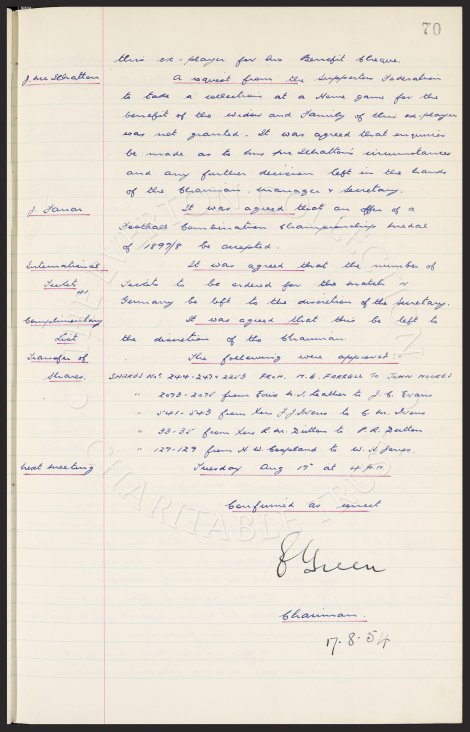 70
this ex-player for his Benefit Cheque.
J. McIlhatton A request from the Supporters Federation
to take a collection at a Home game for the
benefit of the Widow and Family of this ex-player
was not granted. It was agreed that enquiries
be made as to Mrs McIlhatton's circumstances
and any further decision left in the hands
of the Chairman, Manager & Secretary.
J. It was agreed that an offer of a
Football Combination Championship Medal
of 1897/8 be accepted.
International It was agreed that the number of
Ticket Tickets to be ordered for the match v
Germany be left to the discretion of the Secretary.
Complimentary It was agreed that this be left to
List the discretion of the Chairman.
Transfer of The following were approved:-
Shares. SHARES Nos 244-247 & 2253 FROM. M.E. FARRELL TO JOHN MOORES
" 2073-2075 from Exors W.J. Leather to J.C. Evans
" 541-543 from Exors J.J. Ivens to C.M. Ivens
" 33-35 from Exors R.M. Dutton to P.R. Dutton
" 127-129 from H.W. Coopland to W.H. Jones
Next Meeting Tuesday Aug 17th at 4 p.m.
Confirmed as correct
Green
Chairman.
17.8.54
THE EVERTON COLLECTION
CHARITABLE TRUST